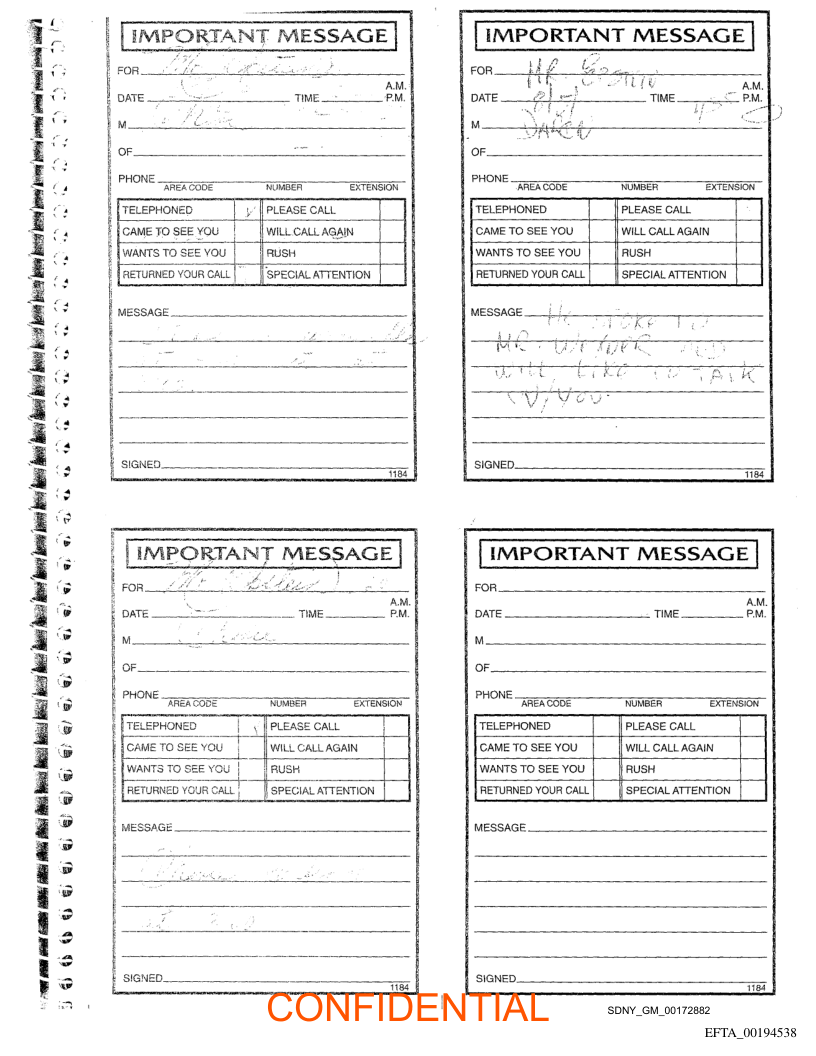 IMPORTANT MESSAGE
FOR Mr
A.M.
DATE TIME P.M.
M
OF
PHONE
AREA CODE NUMBER EXTENSION
TELEPHONED PLEASE CALL
CAME TO SEE YOU WILL CALL AGAIN
WANTS TO SEE YOU RUSH
RETURNED YOUR CALL SPECIAL ATTENTION
MESSAGE
SIGNED
1184
IMPORTANT MESSAGE
FOR MR.
A.M.
DATE 8/5/ TIME P.M.
M
OF
PHONE
AREA CODE NUMBER EXTENSION
TELEPHONED PLEASE CALL
CAME TO SEE YOU WILL CALL AGAIN
WANTS TO SEE YOU RUSH
RETURNED YOUR CALL SPECIAL ATTENTION
MESSAGE He SPOKE TO
MR. AND
WILL LIKE TO TALK
W/YOU.
SIGNED
1184
IMPORTANT MESSAGE
FOR Mr
A.M.
DATE TIME P.M.
M
OF
PHONE
AREA CODE NUMBER EXTENSION
TELEPHONED PLEASE CALL
CAME TO SEE YOU WILL CALL AGAIN
WANTS TO SEE YOU RUSH
RETURNED YOUR CALL SPECIAL ATTENTION
MESSAGE
SIGNED
1184
IMPORTANT MESSAGE
FOR
A.M.
DATE TIME P.M.
M
OF
PHONE
AREA CODE NUMBER EXTENSION
TELEPHONED PLEASE CALL
CAME TO SEE YOU WILL CALL AGAIN
WANTS TO SEE YOU RUSH
RETURNED YOUR CALL SPECIAL ATTENTION
MESSAGE
SIGNED
1184
CONFIDENTIAL
SDNY_GM_00172882
EFTA_00194538